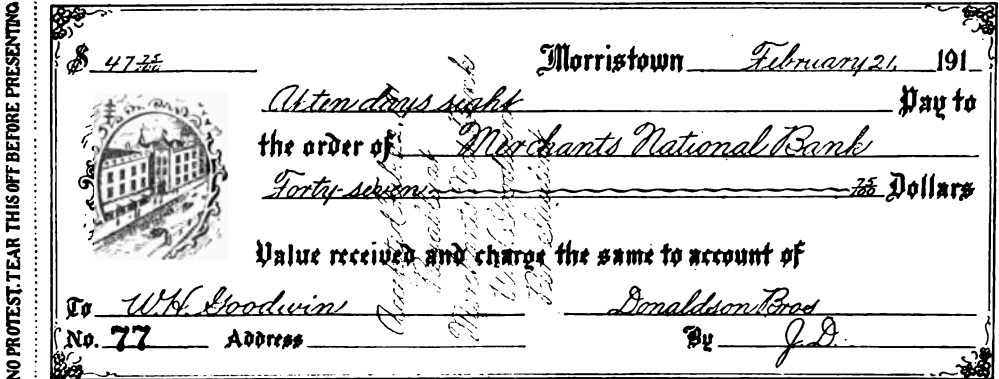 NO PROTEST, TEAR THIS OFF BEFORE PRESENTING
$ 47 75/100 Morristown February 21, 191
At ten days sight Pay to
the order of Merchants National Bank
Forty-seven 75/100 Dollars
Value received and charge the same to account of
To W.H. Goodwin Donaldson Bros
No. 77 Address By J.D.
Accepted
Payable at
Merchants National Bank
W.H. Goodwin